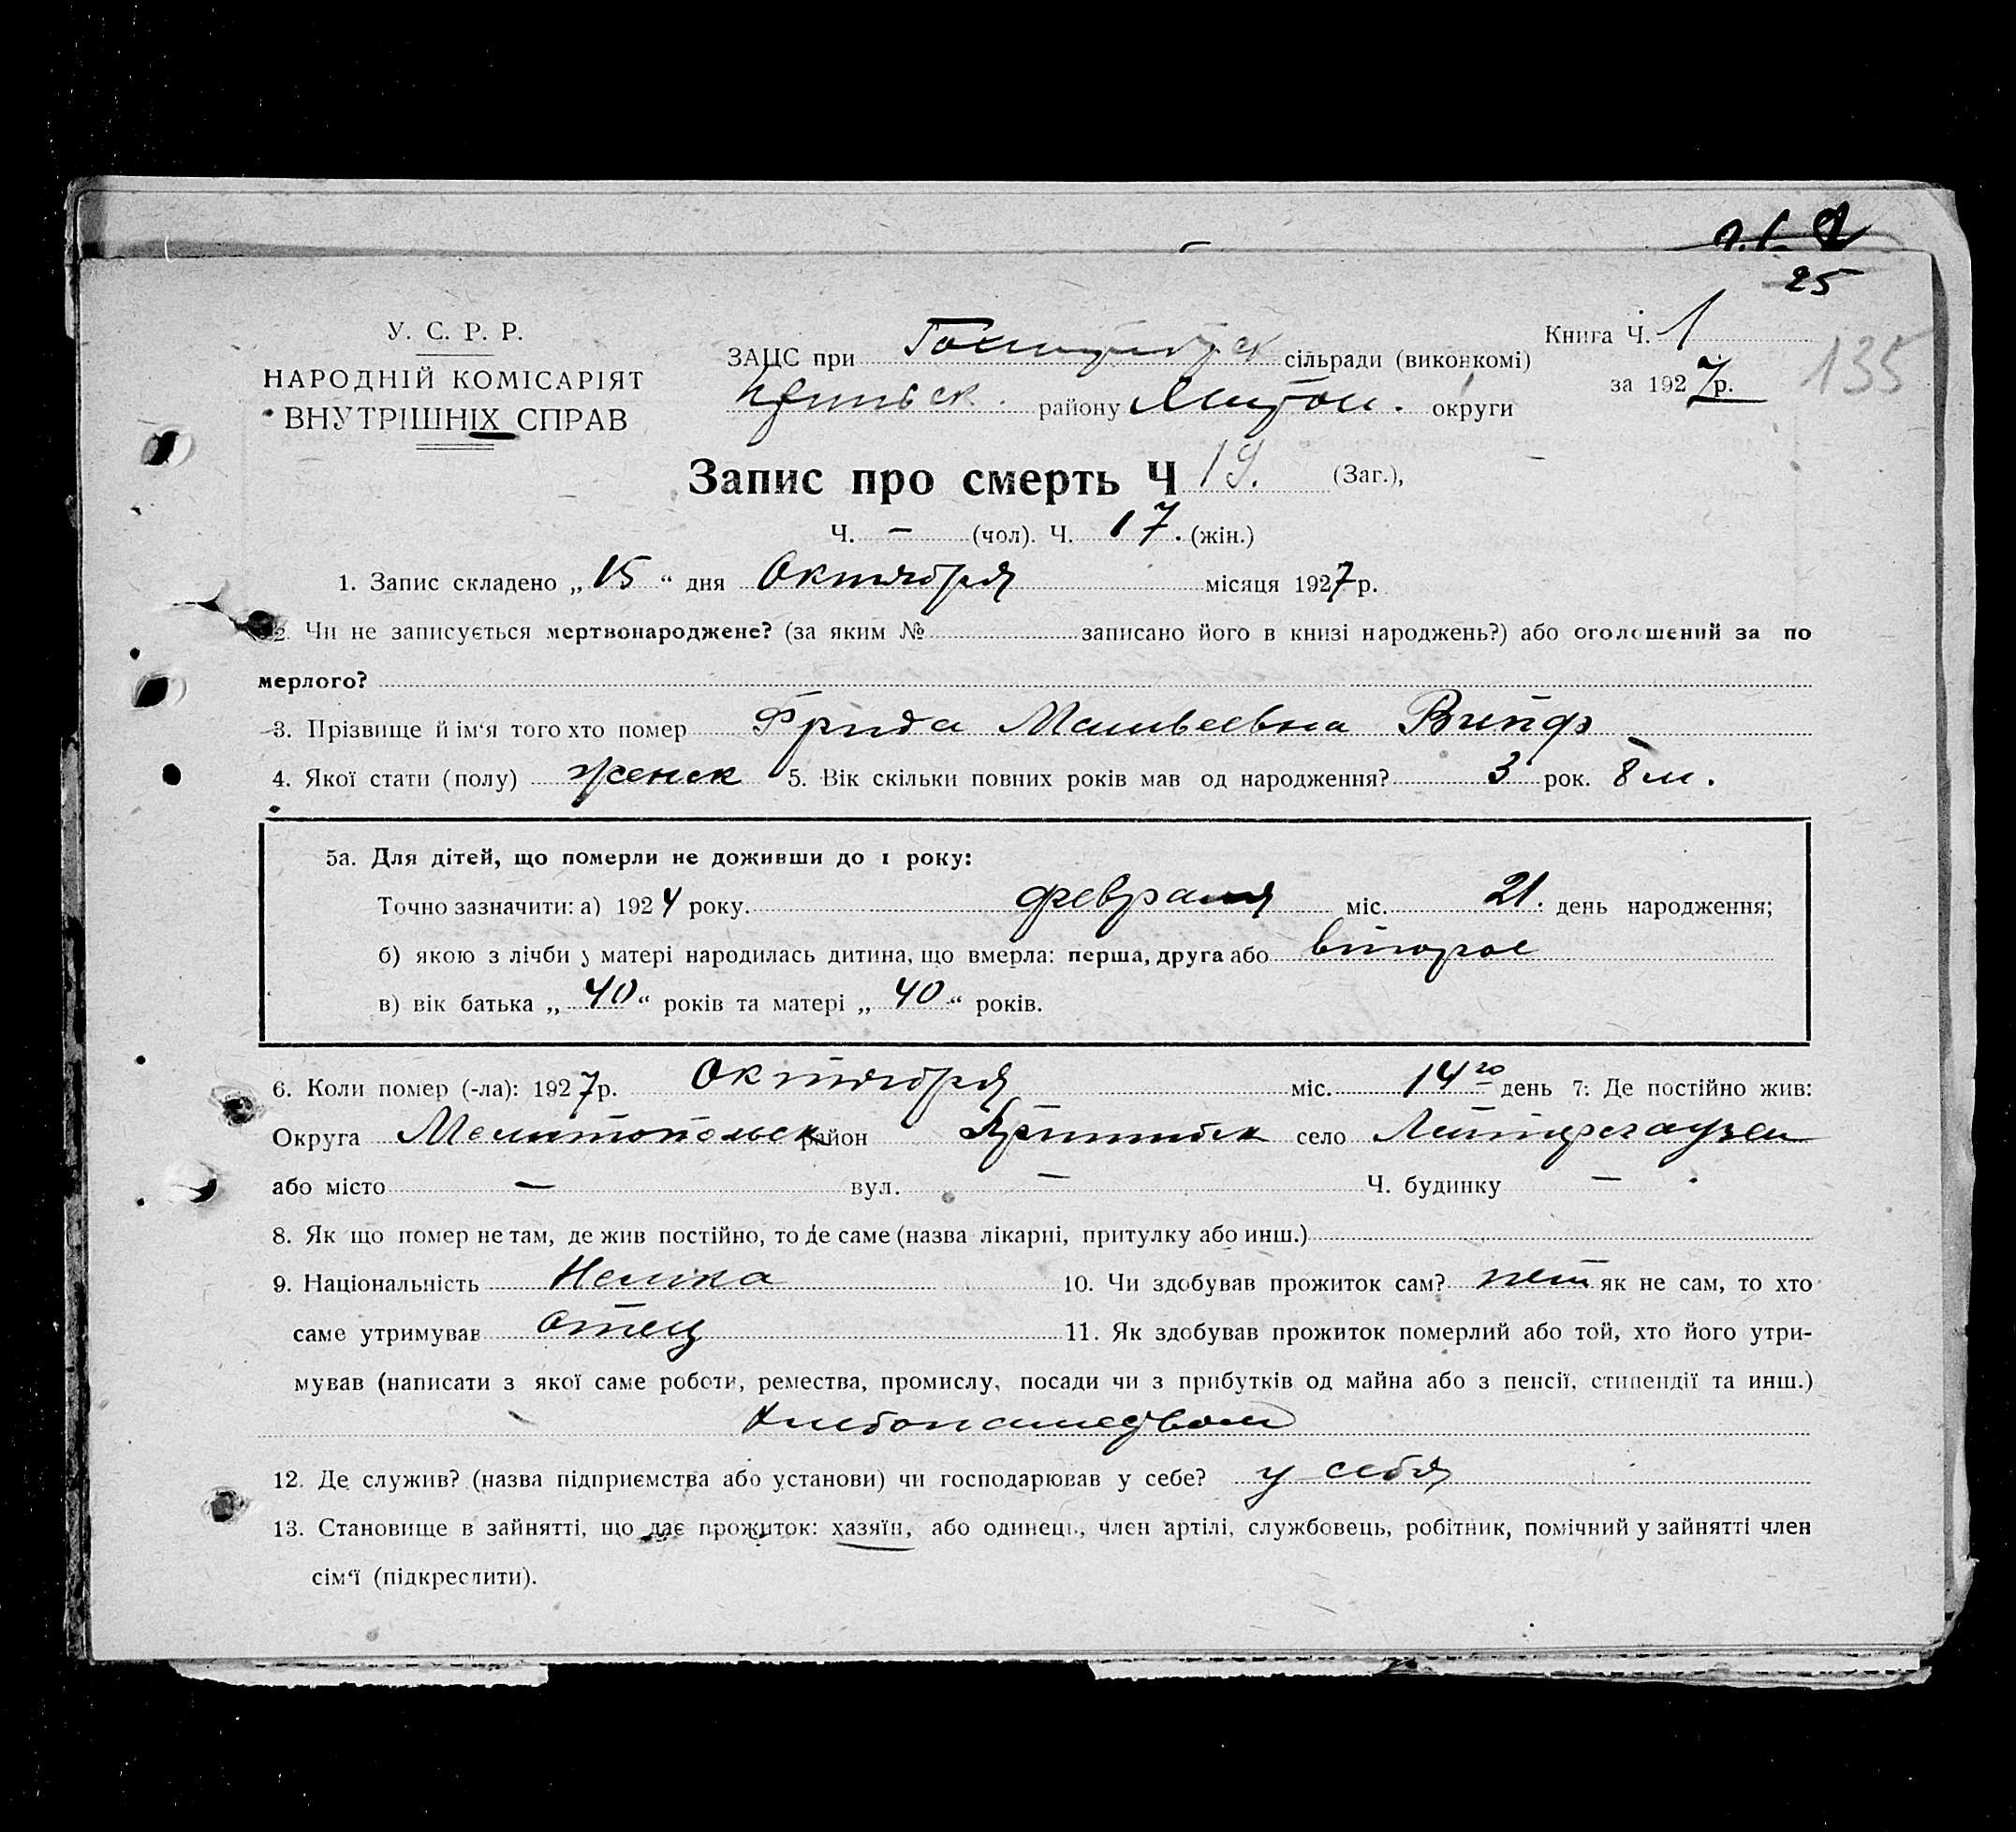 25
У. С. Р. Р.
НАРОДНІЙ КОМІСАРІЯТ
ВНУТРІШНІХ СПРАВ
Книга Ч. 1
за 1927 р.
135
ЗАЦС при сільради (виконкомі)
району округи
Запис про смерть Ч 19. (Заг.),
Ч. – (чол). Ч. 17. (жін.)
1. Запис складено „ 15 “ дня Октября місяця 1927 р.
2. Чи не записується мертвонароджене? (за яким № записано його в книзі народжень?) або оголошений за по
мерлого?
3. Прізвище й ім‘я того хто помер Фрида Матвеевна Вийф
4. Якої стати (полу) женск 5. Вік скільки повних років мав од народження? 3 рок. 8 м.
5а. Для дітей, що померли не доживши до 1 року:
Точно зазначити: а) 1924 року. февраля міс. 21. день народження;
б) якою з лічби у матері народилась дитина, що вмерла: перша, друга або второе
в) вік батька „ 40 “ років та матері „ 40 “ років.
6. Коли помер (-ла): 1927 р. Октября міс. 14го день 7: Де постійно жив:
Округа Мелитопольск район село
або місто – вул. – Ч. будинку –
8. Як що помер не там, де жив постійно, то де саме (назва лікарні, притулку або инш.)
9. Національність Немка 10. Чи здобував прожиток сам? нет як не сам, то хто
саме утримував отец 11. Як здобував прожиток померлий або той, хто його утри-
мував (написати з якої саме роботи, ремества, промислу, посади чи з прибутків од майна або з пенсії, стипендії та инш.)
Хлебопашеством
12. Де служив? (назва підприємства або установи) чи господарював у себе? у себя
13. Становище в зайнятті, що дає прожиток: хазяїн, або одинець, член артілі, службовець, робітник, помічний у зайнятті член
сім‘ї (підкреслити).